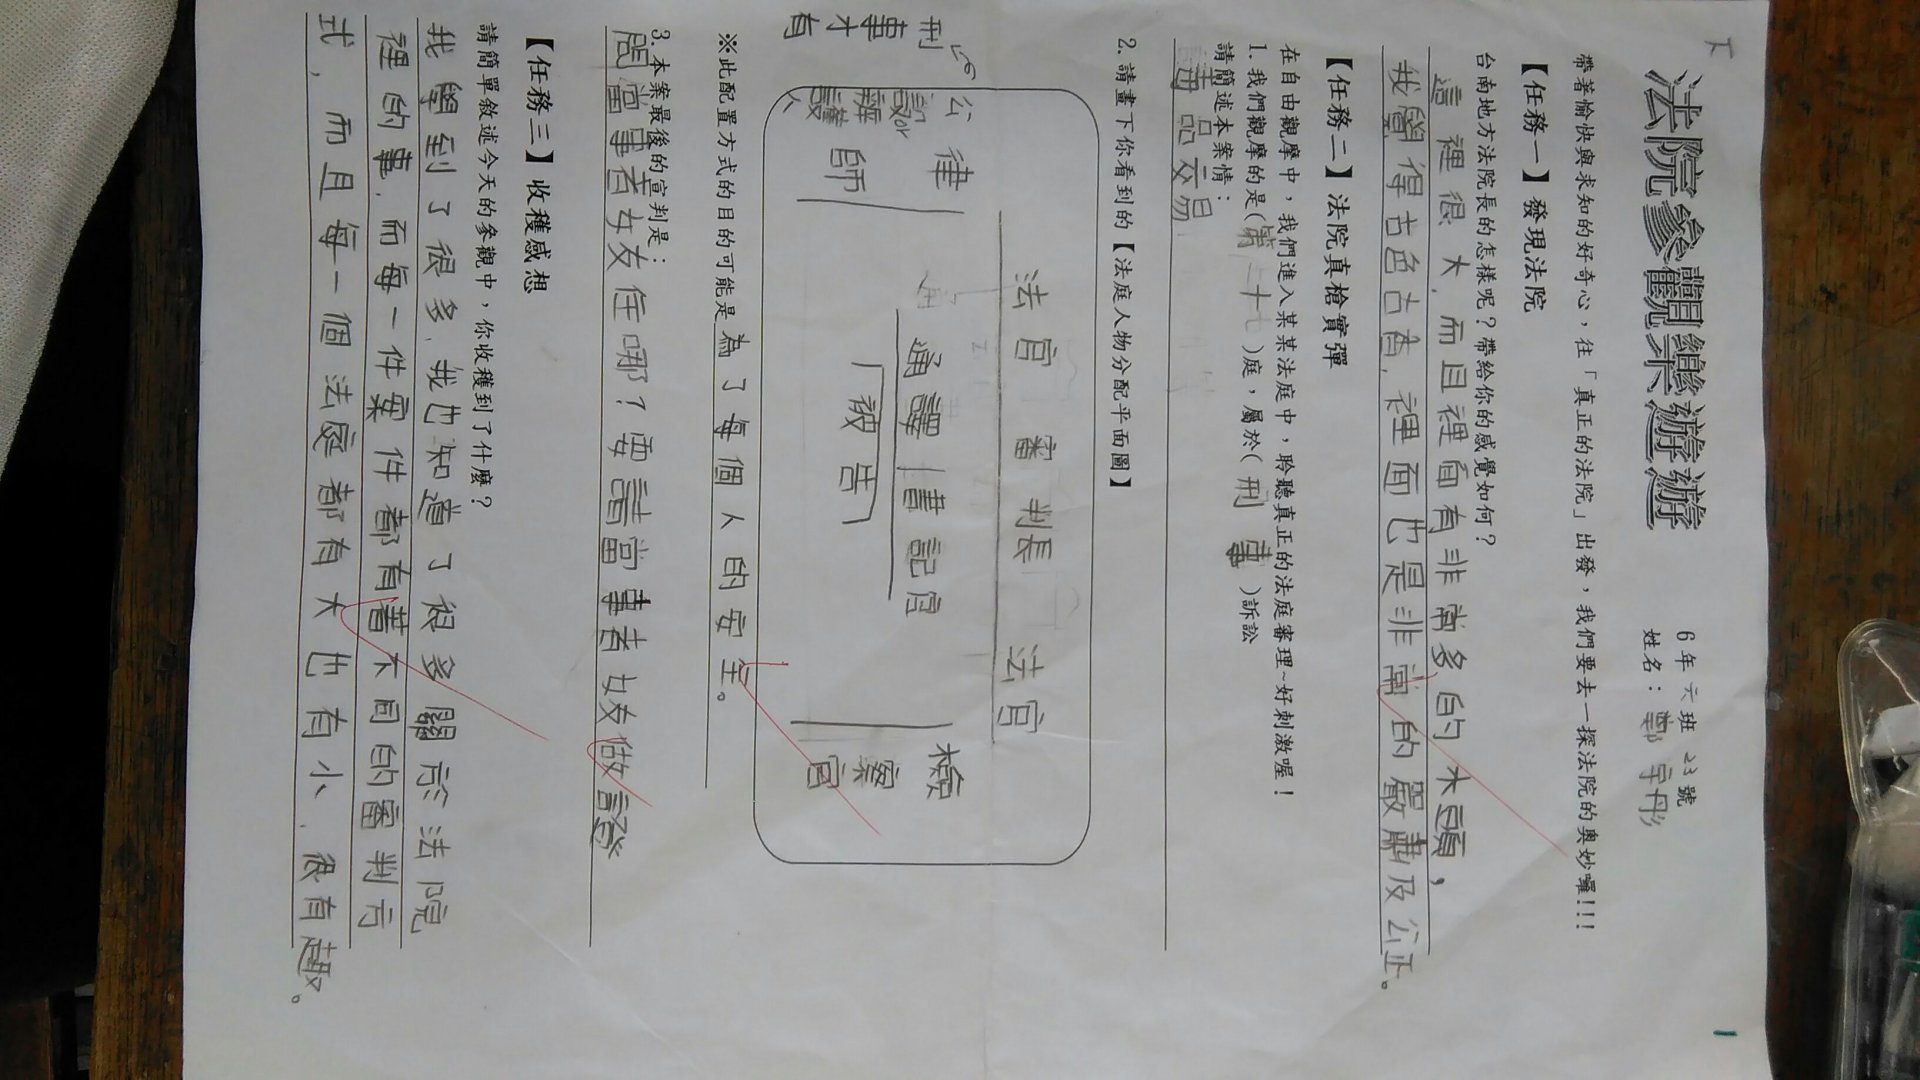 法院參觀樂遊遊
6年六班23號
姓名：鄭宇彤
帶著愉快與求知的好奇心，往「真正的法院」出發，我們要去一探法院的奧妙囉!!!
【任務一】發現法院
台南地方法院長的怎樣呢？帶給你的感覺如何？
這裡很大，而且裡面有非常多的木頭，
我覺得古色古香，裡面也是非常的嚴肅及公正。
【任務二】法院真槍實彈
在自由觀摩中，我們進入某某法庭中，聆聽真正的法庭審理~好刺激喔！
1. 我們觀摩的是(第二十七)庭，屬於(刑事)訴訟
請簡述本案情：
毒品交易
2. 請畫下你看到的【法庭人物分配平面圖】
法官 審判長 法官
通譯 | 書記官
被告
律師
公設辯護人
or
刑事才有
檢察官
※此配置方式的目的可能是為了每個人的安全。
3. 本案最後的宣判是：
問當事者女友住哪？要請當事者女友做證
【任務三】收獲感想
請簡單敘述今天的參觀中，你收穫到了什麼？
我學到了很多，我也知道了很多關於法院
裡的事，而每一件案件都有著不同的審判方
式，而且每一個法庭都有大也有小，很有趣。